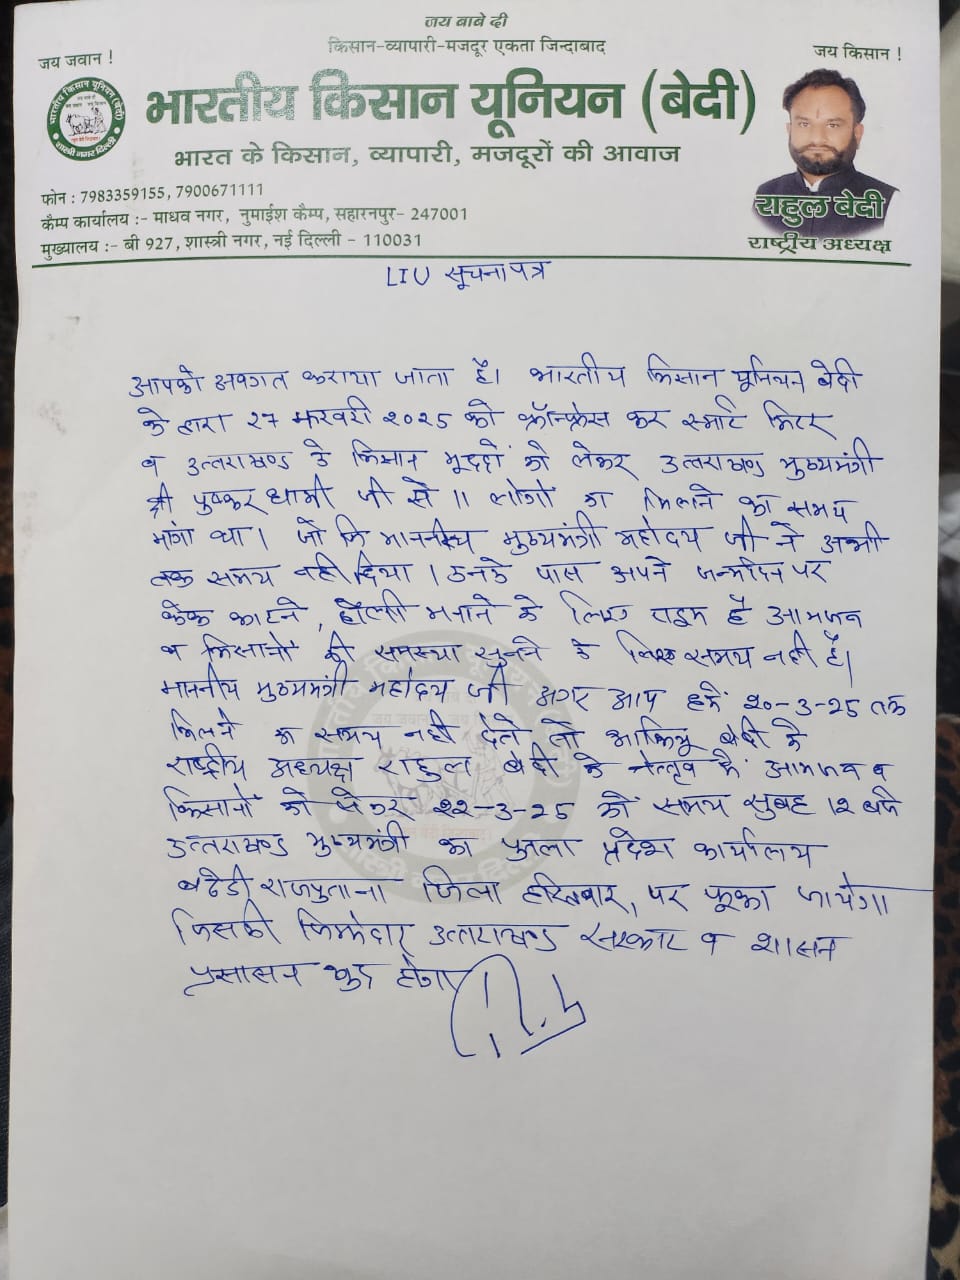 जय बाबे दी
किसान-व्यापारी-मजदूर एकता जिन्दाबाद
जय जवान !
जय किसान !
भारतीय किसान यूनियन (बेदी)
भारत के किसान, व्यापारी, मजदूरों की आवाज
फोन : 7983359155, 7900671111
कैम्प कार्यालय :- माधव नगर, नुमाईश कैम्प, सहारनपुर- 247001
मुख्यालय :- बी 927, शास्त्री नगर, नई दिल्ली - 110031
राहुल बेदी
राष्ट्रीय अध्यक्ष
LIU सूचना पत्र
आपको अवगत कराया जाता है। भारतीय किसान यूनियन बेदी
के द्वारा २७ फरवरी २०२५ को कॉन्फ्रेंस कर स्मार्ट मिटर
व उत्तराखण्ड के किसान मुद्दों को लेकर उत्तराखण्ड मुख्यमंत्री
श्री पुष्कर धामी जी से 11 लोगों का मिलने का समय
मांगा था। जो कि माननीय मुख्यमंत्री महोदय जी ने अभी
तक समय नही दिया। उनके पास अपने जन्मदिन पर
केक काटने, होली मनाने के लिए टाइम है आमजन
व किसानों की समस्या सुनने के लिए समय नही है।
माननीय मुख्यमंत्री महोदय जी अगर आप हमें २०-3-25 तक
मिलने का समय नही देते तो भाकियू बेदी के
राष्ट्रीय अध्यक्ष राहुल बेदी के नेतृत्व में आमजन व
किसानों को लेकर २२-3-25 को समय सुबह 12 बजे
उत्तराखण्ड मुख्यमंत्री का पुतला प्रदेश कार्यालय
बढेडी राजपुताना जिला हरिद्वार, पर फूका जायेगा
जिसकी जिम्मेदार उत्तराखण्ड सरकार व शासन
प्रसासन खुद होगा